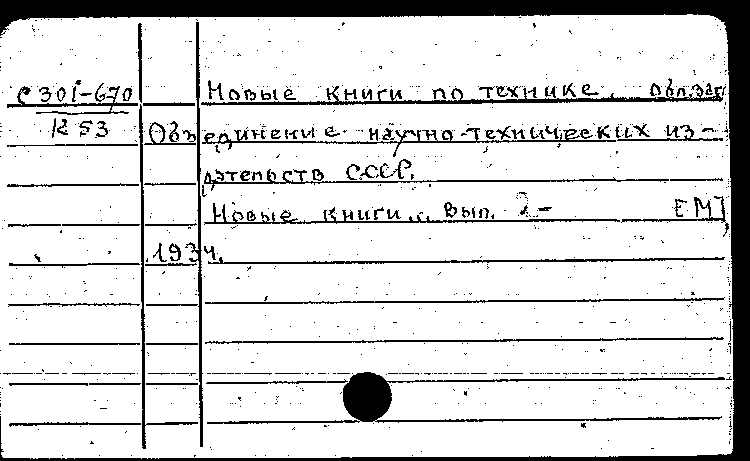 С301-670
К53
Новые книги по технике. Обл.заг
Объединение научно-технических из-
дательств СССР.
Новые книги... Вып. 2- [М]
1934.